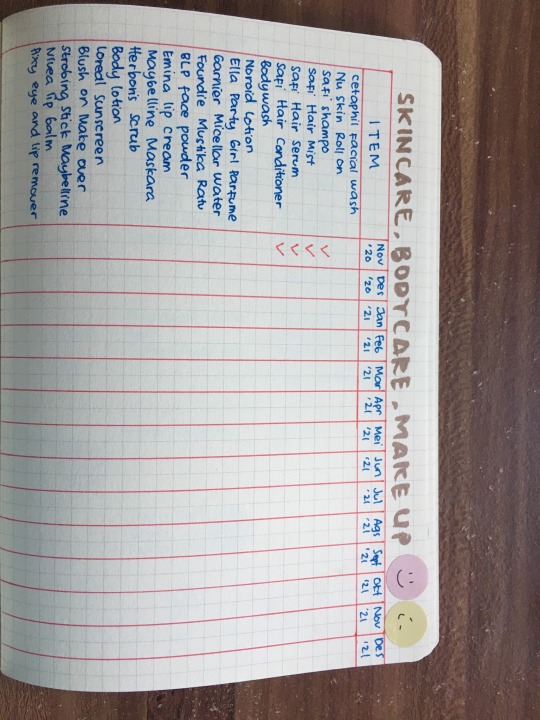 SKINCARE, BODYCARE, MAKE UP
ITEM Nov '20 Des '20 Jan '21 Feb '21 Mar '21 Apr '21 Mei '21 Jun '21 Jul '21 Ags '21 Sept '21 Okt '21 Nov '21 Des '21
cetaphil Facial wash
Nu skin Roll on
Safi shampo
Safi Hair Mist
Safi Hair Serum
Safi Hair Conditioner
Bodywash
Noroid Lotion
Ella Party Girl Parfume
Garnier Micellar Water
Foundie Mustika Ratu
BLP Face powder
Emina lip cream
Maybelline Maskara
Herboris scrub
Body lotion
Loreal sunscreen
Blush on Make over
Strobing stick Maybelline
Nivea lip balm
Pixy eye and lip remover